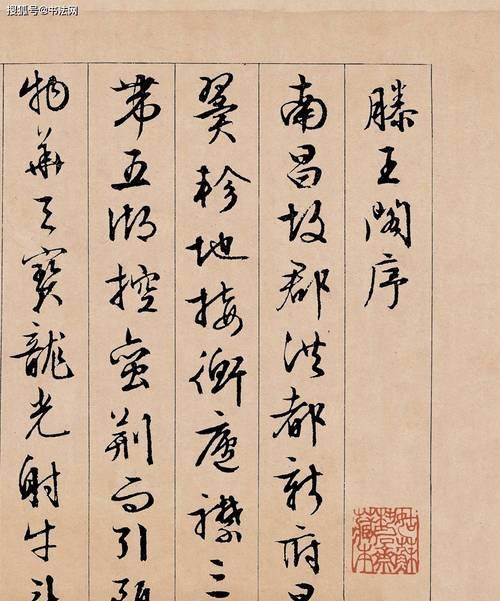 搜狐号@书法网
滕王閣序
南昌故郡洪都新府
翼軫地接衡廬襟三
帶五湖控蠻荊而引
物華天寶龍光射牛